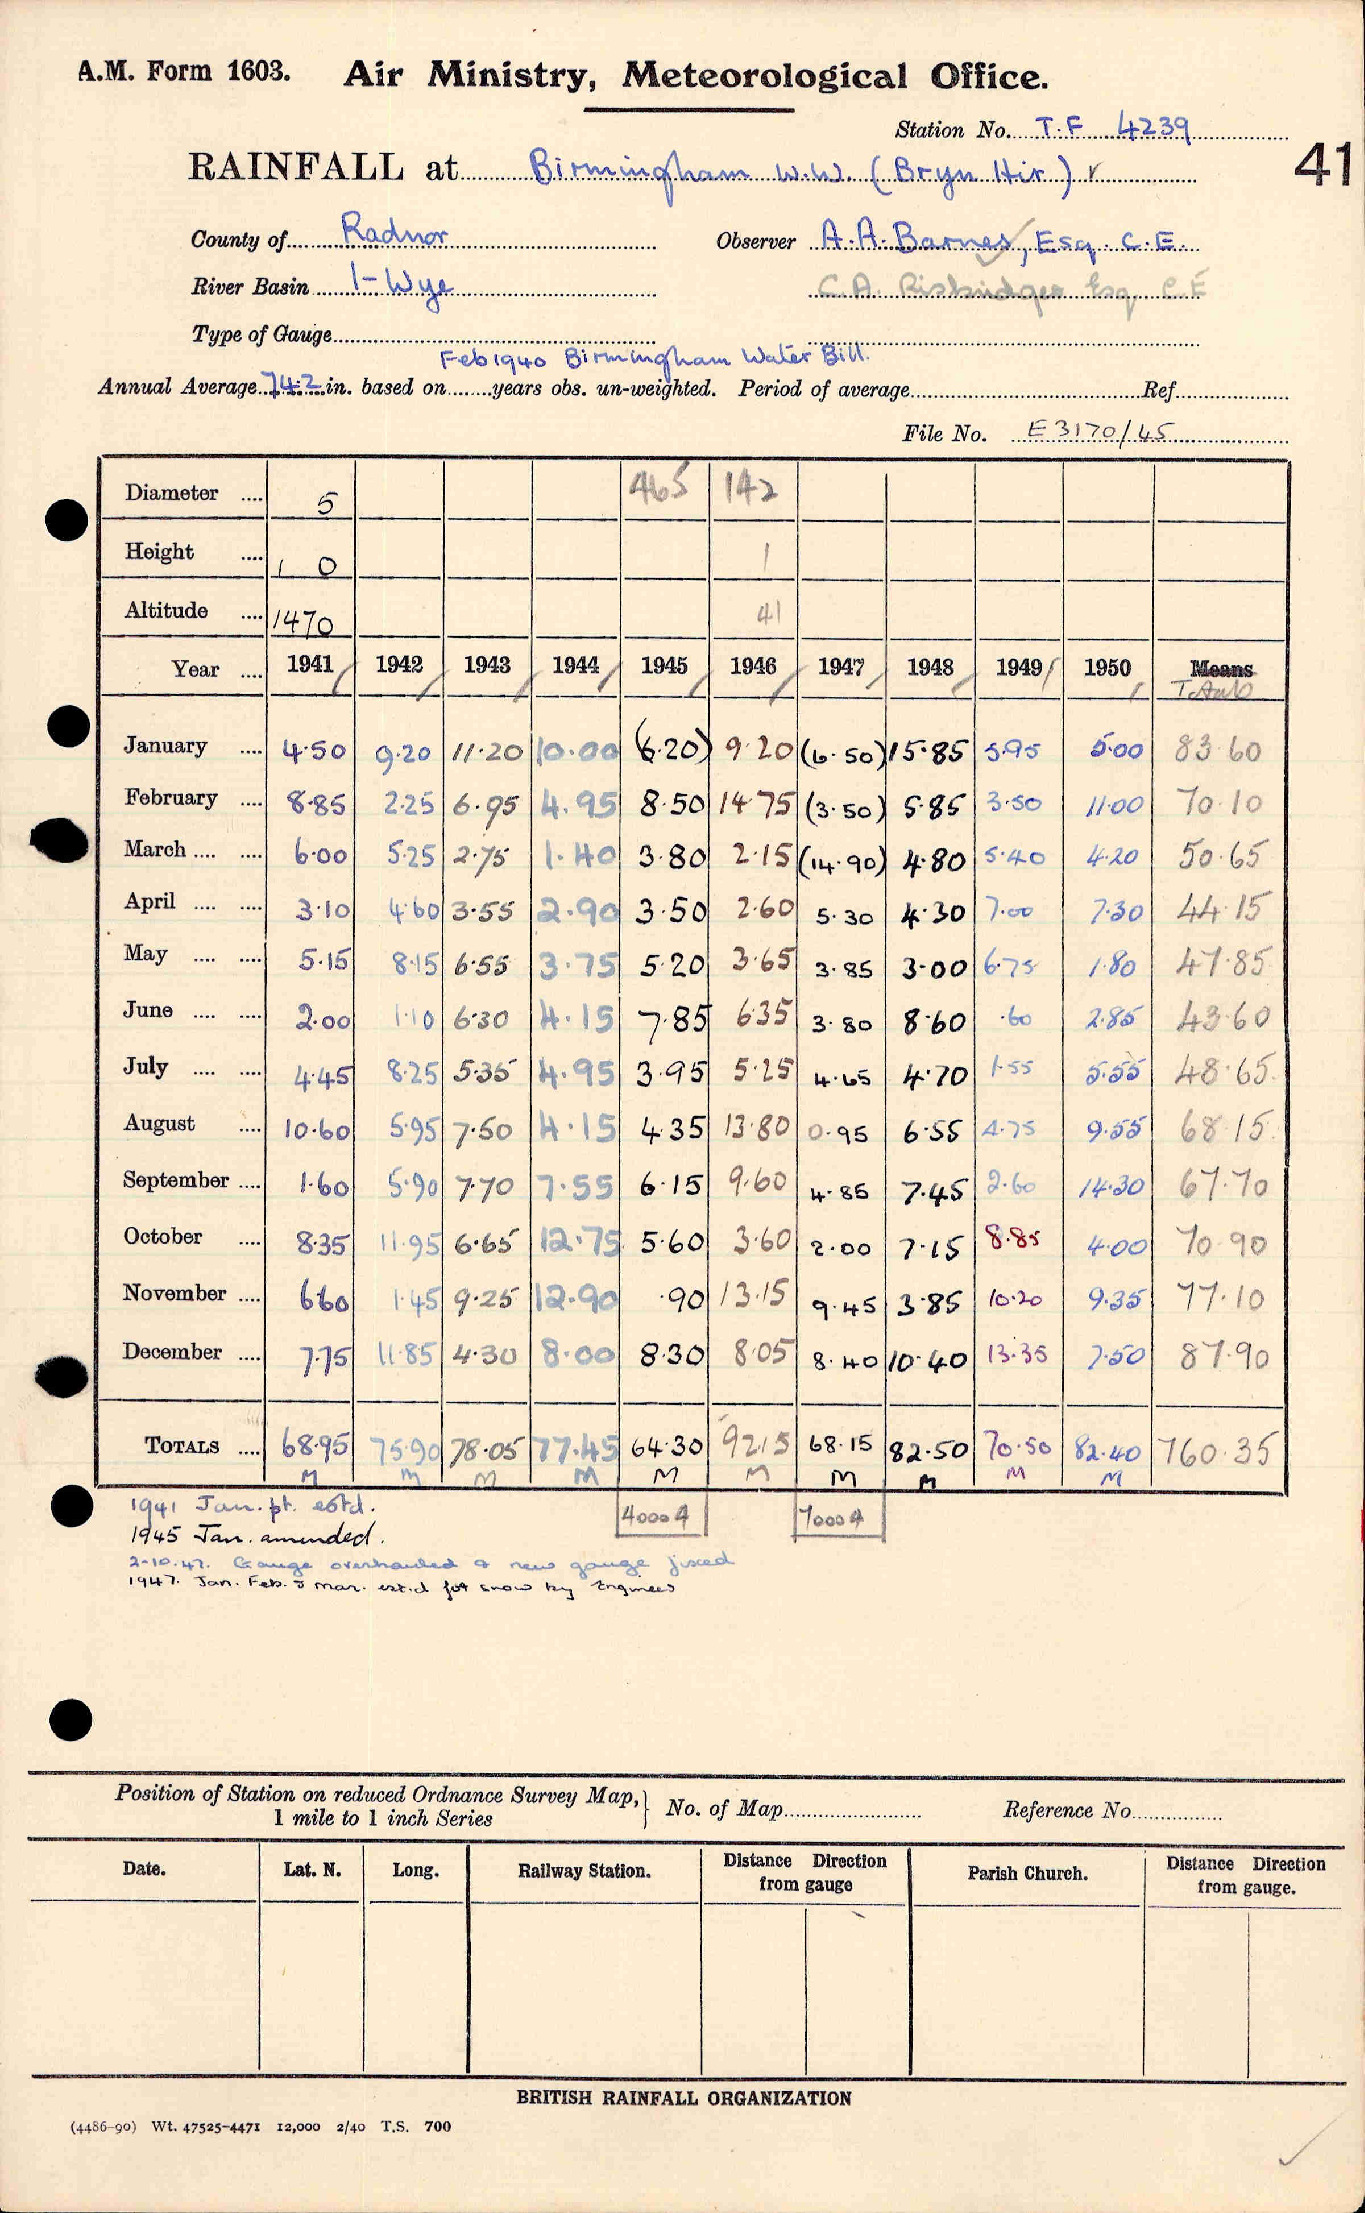 A.M. Form 1603. Air Ministry, Meteorological Office.
Station No. T.F 4239
41
RAINFALL at Birmingham W.W. (Bryn Hir) ✓
County of Radnor Observer A.A. Barnes, Esq. C.E.
River Basin 1 - Wye C.A. Risbridger Esq. C.E
Type of Gauge
Feb 1940 Birmingham Water Bill.
Annual Average 74.2 in. based on years obs. un-weighted. Period of average Ref
File No. E 3170/45
Diameter .... 5 465 142
Height .... 1 0 1
Altitude .... 1470 41
Year .... 1941 1942 1943 1944 1945 1946 1947 1948 1949 1950 Means
Totals
January .... 4.50 9.20 11.20 10.00 (6.20) 9.20 (6.50) 15.85 5.95 5.00 83.60
February .... 8.85 2.25 6.95 4.95 8.50 14.75 (3.50) 5.85 3.50 11.00 70.10
March .... .... 6.00 5.25 2.75 1.40 3.80 2.15 (14.90) 4.80 5.40 4.20 50.65
April .... .... 3.10 4.60 3.55 2.90 3.50 2.60 5.30 4.30 7.00 7.30 44.15
May .... .... 5.15 8.15 6.55 3.75 5.20 3.65 3.85 3.00 6.75 1.80 47.85
June .... .... 2.00 1.10 6.30 4.15 7.85 6.35 3.80 8.60 .60 2.85 43.60
July .... .... 4.45 8.25 5.35 4.95 3.95 5.25 4.65 4.70 1.55 5.55 48.65
August .... 10.60 5.95 7.50 4.15 4.35 13.80 0.95 6.55 4.75 9.55 68.15
September .... 1.60 5.90 7.70 7.55 6.15 9.60 4.85 7.45 2.60 14.30 67.70
October .... 8.35 11.95 6.65 12.75 5.60 3.60 2.00 7.15 8.85 4.00 70.90
November .... 6.60 1.45 9.25 12.90 .90 13.15 9.45 3.85 10.20 9.35 77.10
December .... 7.75 11.85 4.30 8.00 8.30 8.05 8.40 10.40 13.35 7.50 87.90
TOTALS .... 68.95 75.90 78.05 77.45 64.30 92.15 68.15 82.50 70.50 82.40 760.35
M M M M M M M M M M
1941 Jan. pt. estd. 4000 A 7000 A
1945 Jan. amended.
2-10.47. Gauge overhauled & new gauge fixed
1947. Jan. Feb. & Mar. est.d for snow by Engineers
Position of Station on reduced Ordnance Survey Map, No. of Map Reference No
1 mile to 1 inch Series
Date. Lat. N. Long. Railway Station. Distance Direction Parish Church. Distance Direction
from gauge from gauge.
BRITISH RAINFALL ORGANIZATION
(4486-90) Wt. 47525-4471 12,000 2/40 T.S. 700